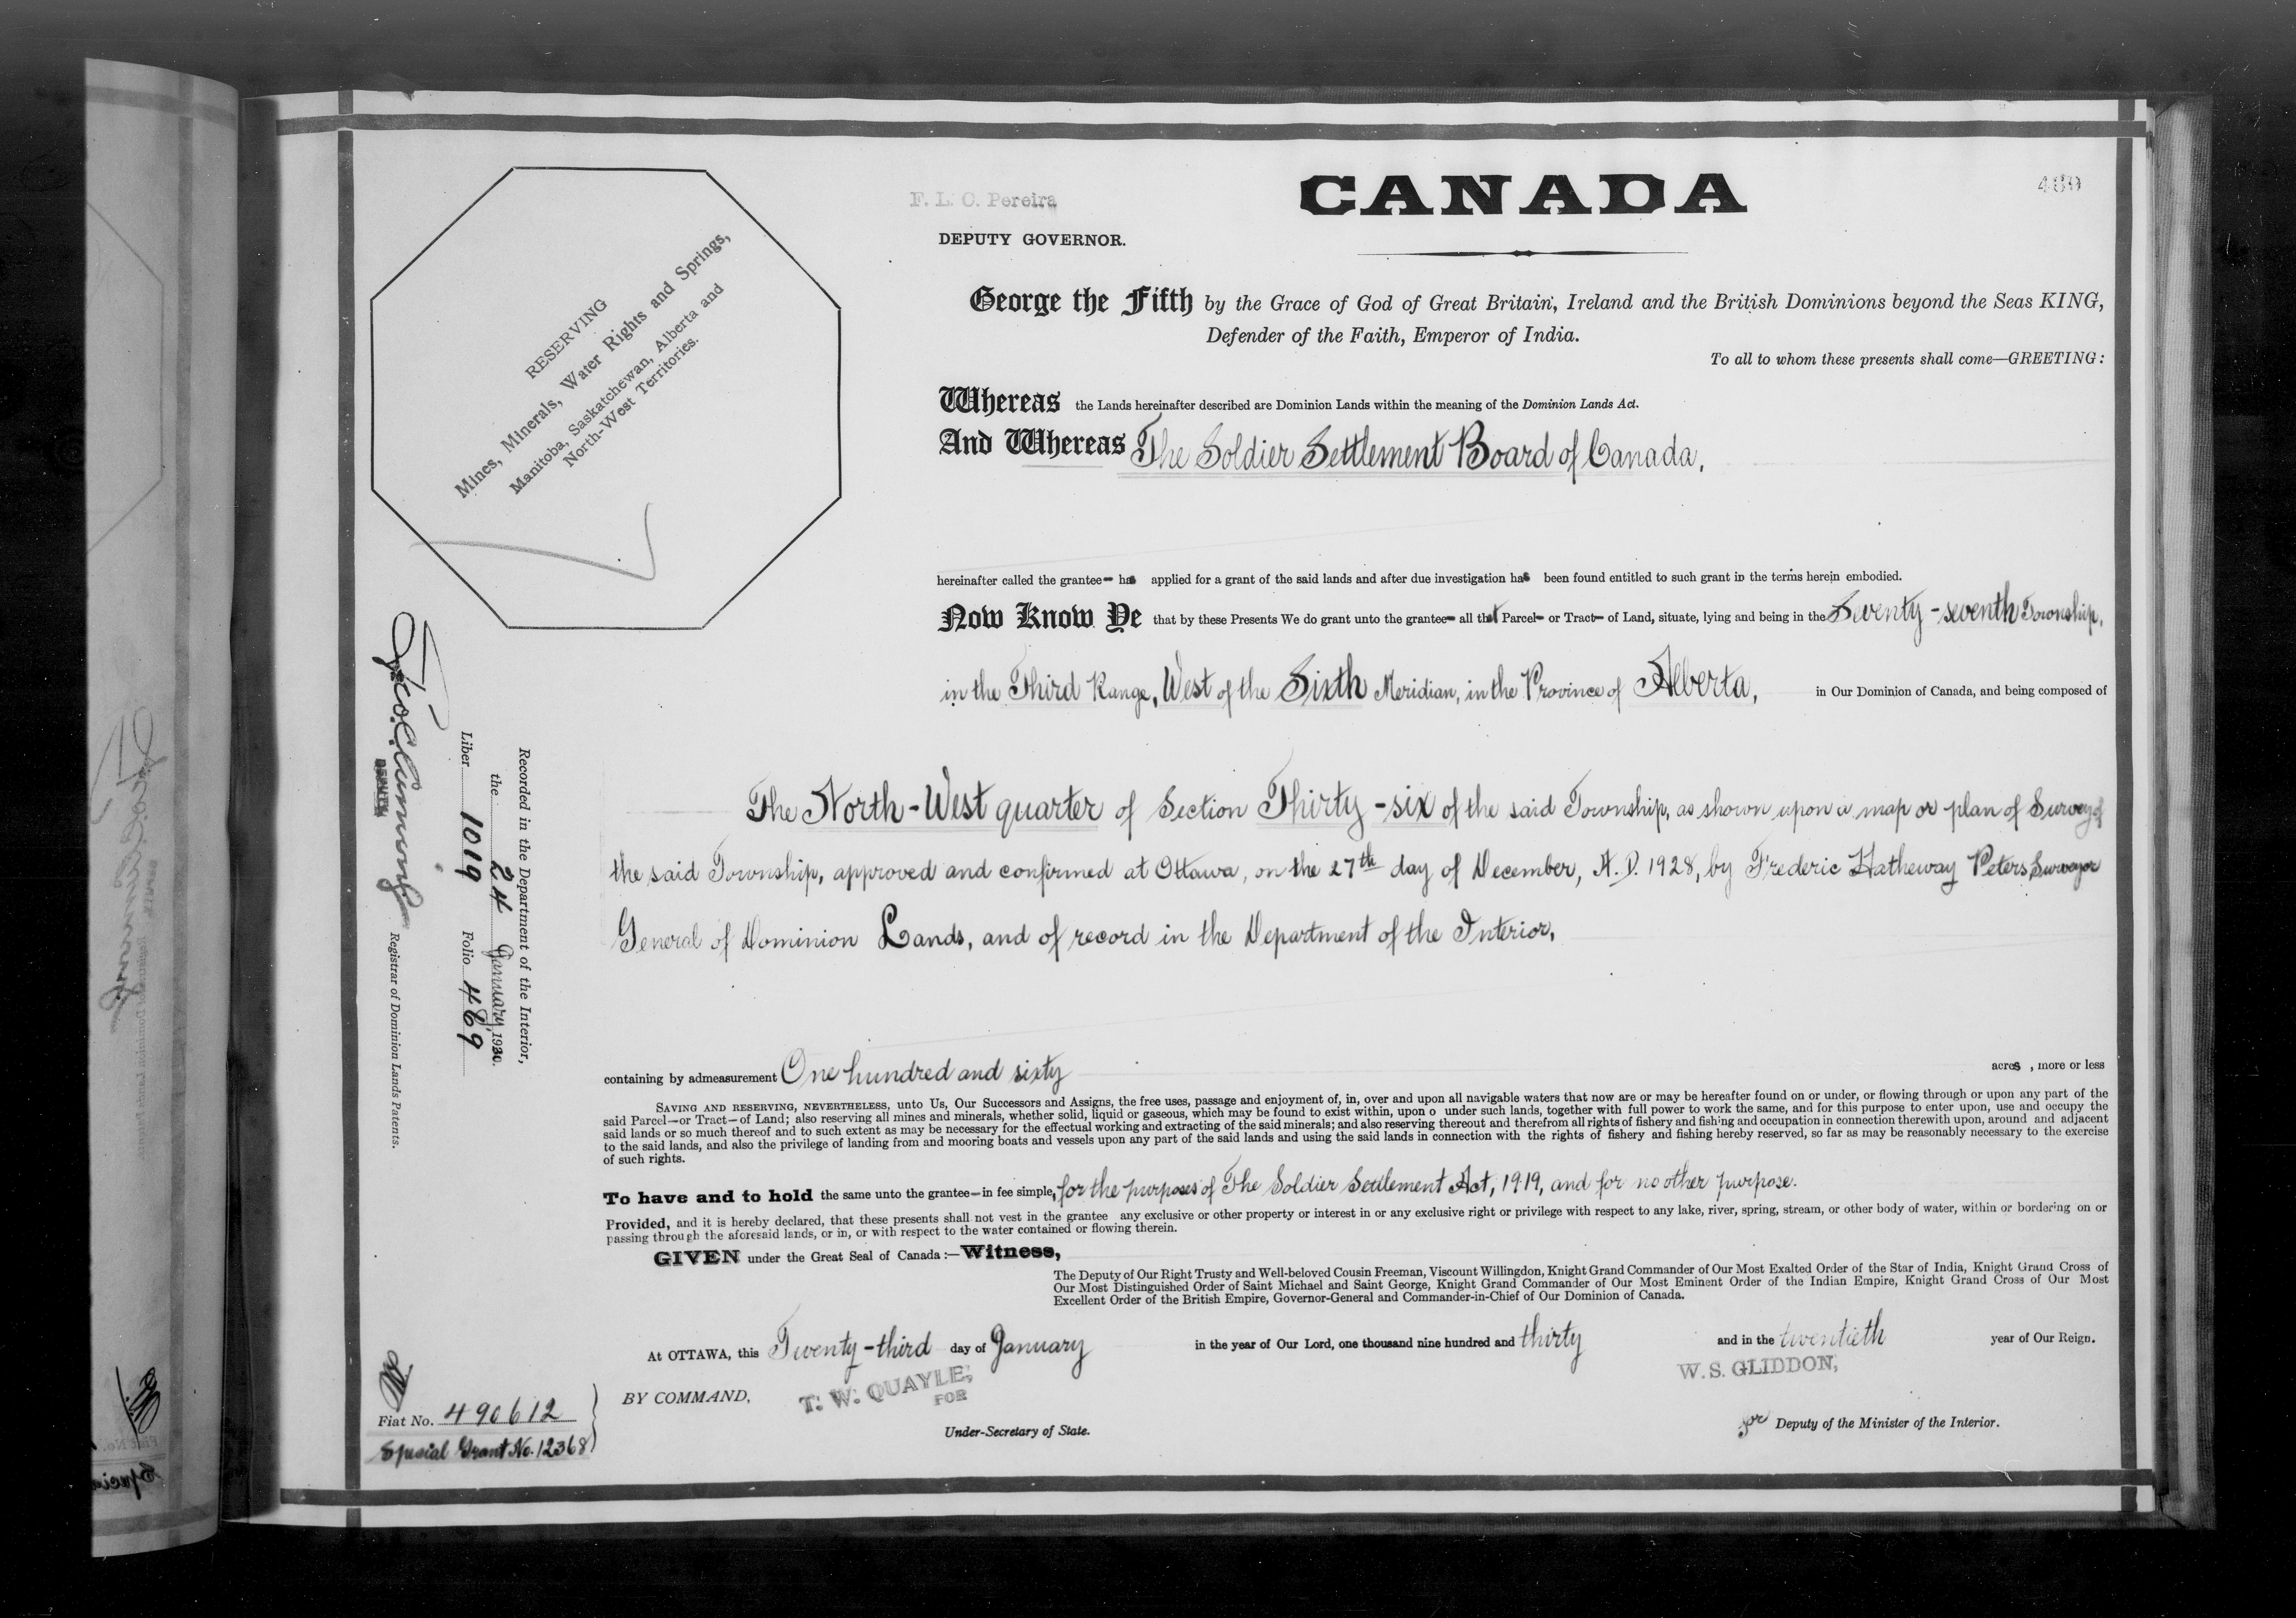 F. L. C. Pereira
DEPUTY GOVERNOR.
CANADA
489
RESERVING
Mines, Minerals, Water Rights and Springs,
Manitoba, Saskatchewan, Alberta and
North-West Territories.
George the Fifth by the Grace of God of Great Britain, Ireland and the British Dominions beyond the Seas KING,
Defender of the Faith, Emperor of India.
To all to whom these presents shall come—GREETING:
Whereas the Lands hereinafter described are Dominion Lands within the meaning of the Dominion Lands Act.
And Whereas The Soldier Settlement Board of Canada,
hereinafter called the grantee— has applied for a grant of the said lands and after due investigation has been found entitled to such grant in the terms herein embodied.
Now Know Ye that by these Presents We do grant unto the grantee— all that Parcel— or Tract— of Land, situate, lying and being in the Seventy-seventh Township,
in the Third Range, West of the Sixth Meridian, in the Province of Alberta, in Our Dominion of Canada, and being composed of
The North-West quarter of Section Thirty-six of the said Township, as shown upon a map or plan of Survey of
the said Township, approved and confirmed at Ottawa, on the 27th day of December, A.D. 1928, by Frederic Hatheway Peters Surveyor
General of Dominion Lands, and of record in the Department of the Interior,
containing by admeasurement One hundred and sixty acres, more or less
SAVING AND RESERVING, NEVERTHELESS, unto Us, Our Successors and Assigns, the free uses, passage and enjoyment of, in, over and upon all navigable waters that now are or may be hereafter found on or under, or flowing through or upon any part of the
said Parcel—or Tract—of Land; also reserving all mines and minerals, whether solid, liquid or gaseous, which may be found to exist within, upon o under such lands, together with full power to work the same, and for this purpose to enter upon, use and occupy the
said lands or so much thereof and to such extent as may be necessary for the effectual working and extracting of the said minerals; and also reserving thereout and therefrom all rights of fishery and fishing and occupation in connection therewith upon, around and adjacent
to the said lands, and also the privilege of landing from and mooring boats and vessels upon any part of the said lands and using the said lands in connection with the rights of fishery and fishing hereby reserved, so far as may be reasonably necessary to the exercise
of such rights.
To have and to hold the same unto the grantee—in fee simple, for the purposes of The Soldier Settlement Act, 1919, and for no other purpose.
Provided, and it is hereby declared, that these presents shall not vest in the grantee any exclusive or other property or interest in or any exclusive right or privilege with respect to any lake, river, spring, stream, or other body of water, within or bordering on or
passing through the aforesaid lands, or in, or with respect to the water contained or flowing therein.
GIVEN under the Great Seal of Canada:—Witness,
The Deputy of Our Right Trusty and Well-beloved Cousin Freeman, Viscount Willingdon, Knight Grand Commander of Our Most Exalted Order of the Star of India, Knight Grand Cross of
Our Most Distinguished Order of Saint Michael and Saint George, Knight Grand Commander of Our Most Eminent Order of the Indian Empire, Knight Grand Cross of Our Most
Excellent Order of the British Empire, Governor-General and Commander-in-Chief of Our Dominion of Canada.
At OTTAWA, this Twenty-third day of January in the year of Our Lord, one thousand nine hundred and thirty and in the twentieth year of Our Reign.
BY COMMAND,
T. W. QUAYLE,
FOR
Under-Secretary of State.
W. S. GLIDDON,
for Deputy of the Minister of the Interior.
Recorded in the Department of the Interior,
the 24 January, 1930.
Liber 1019 Folio 489
DEPUTY
Registrar of Dominion Lands Patents.
Fiat No. 490612
Special Grant No. 12368